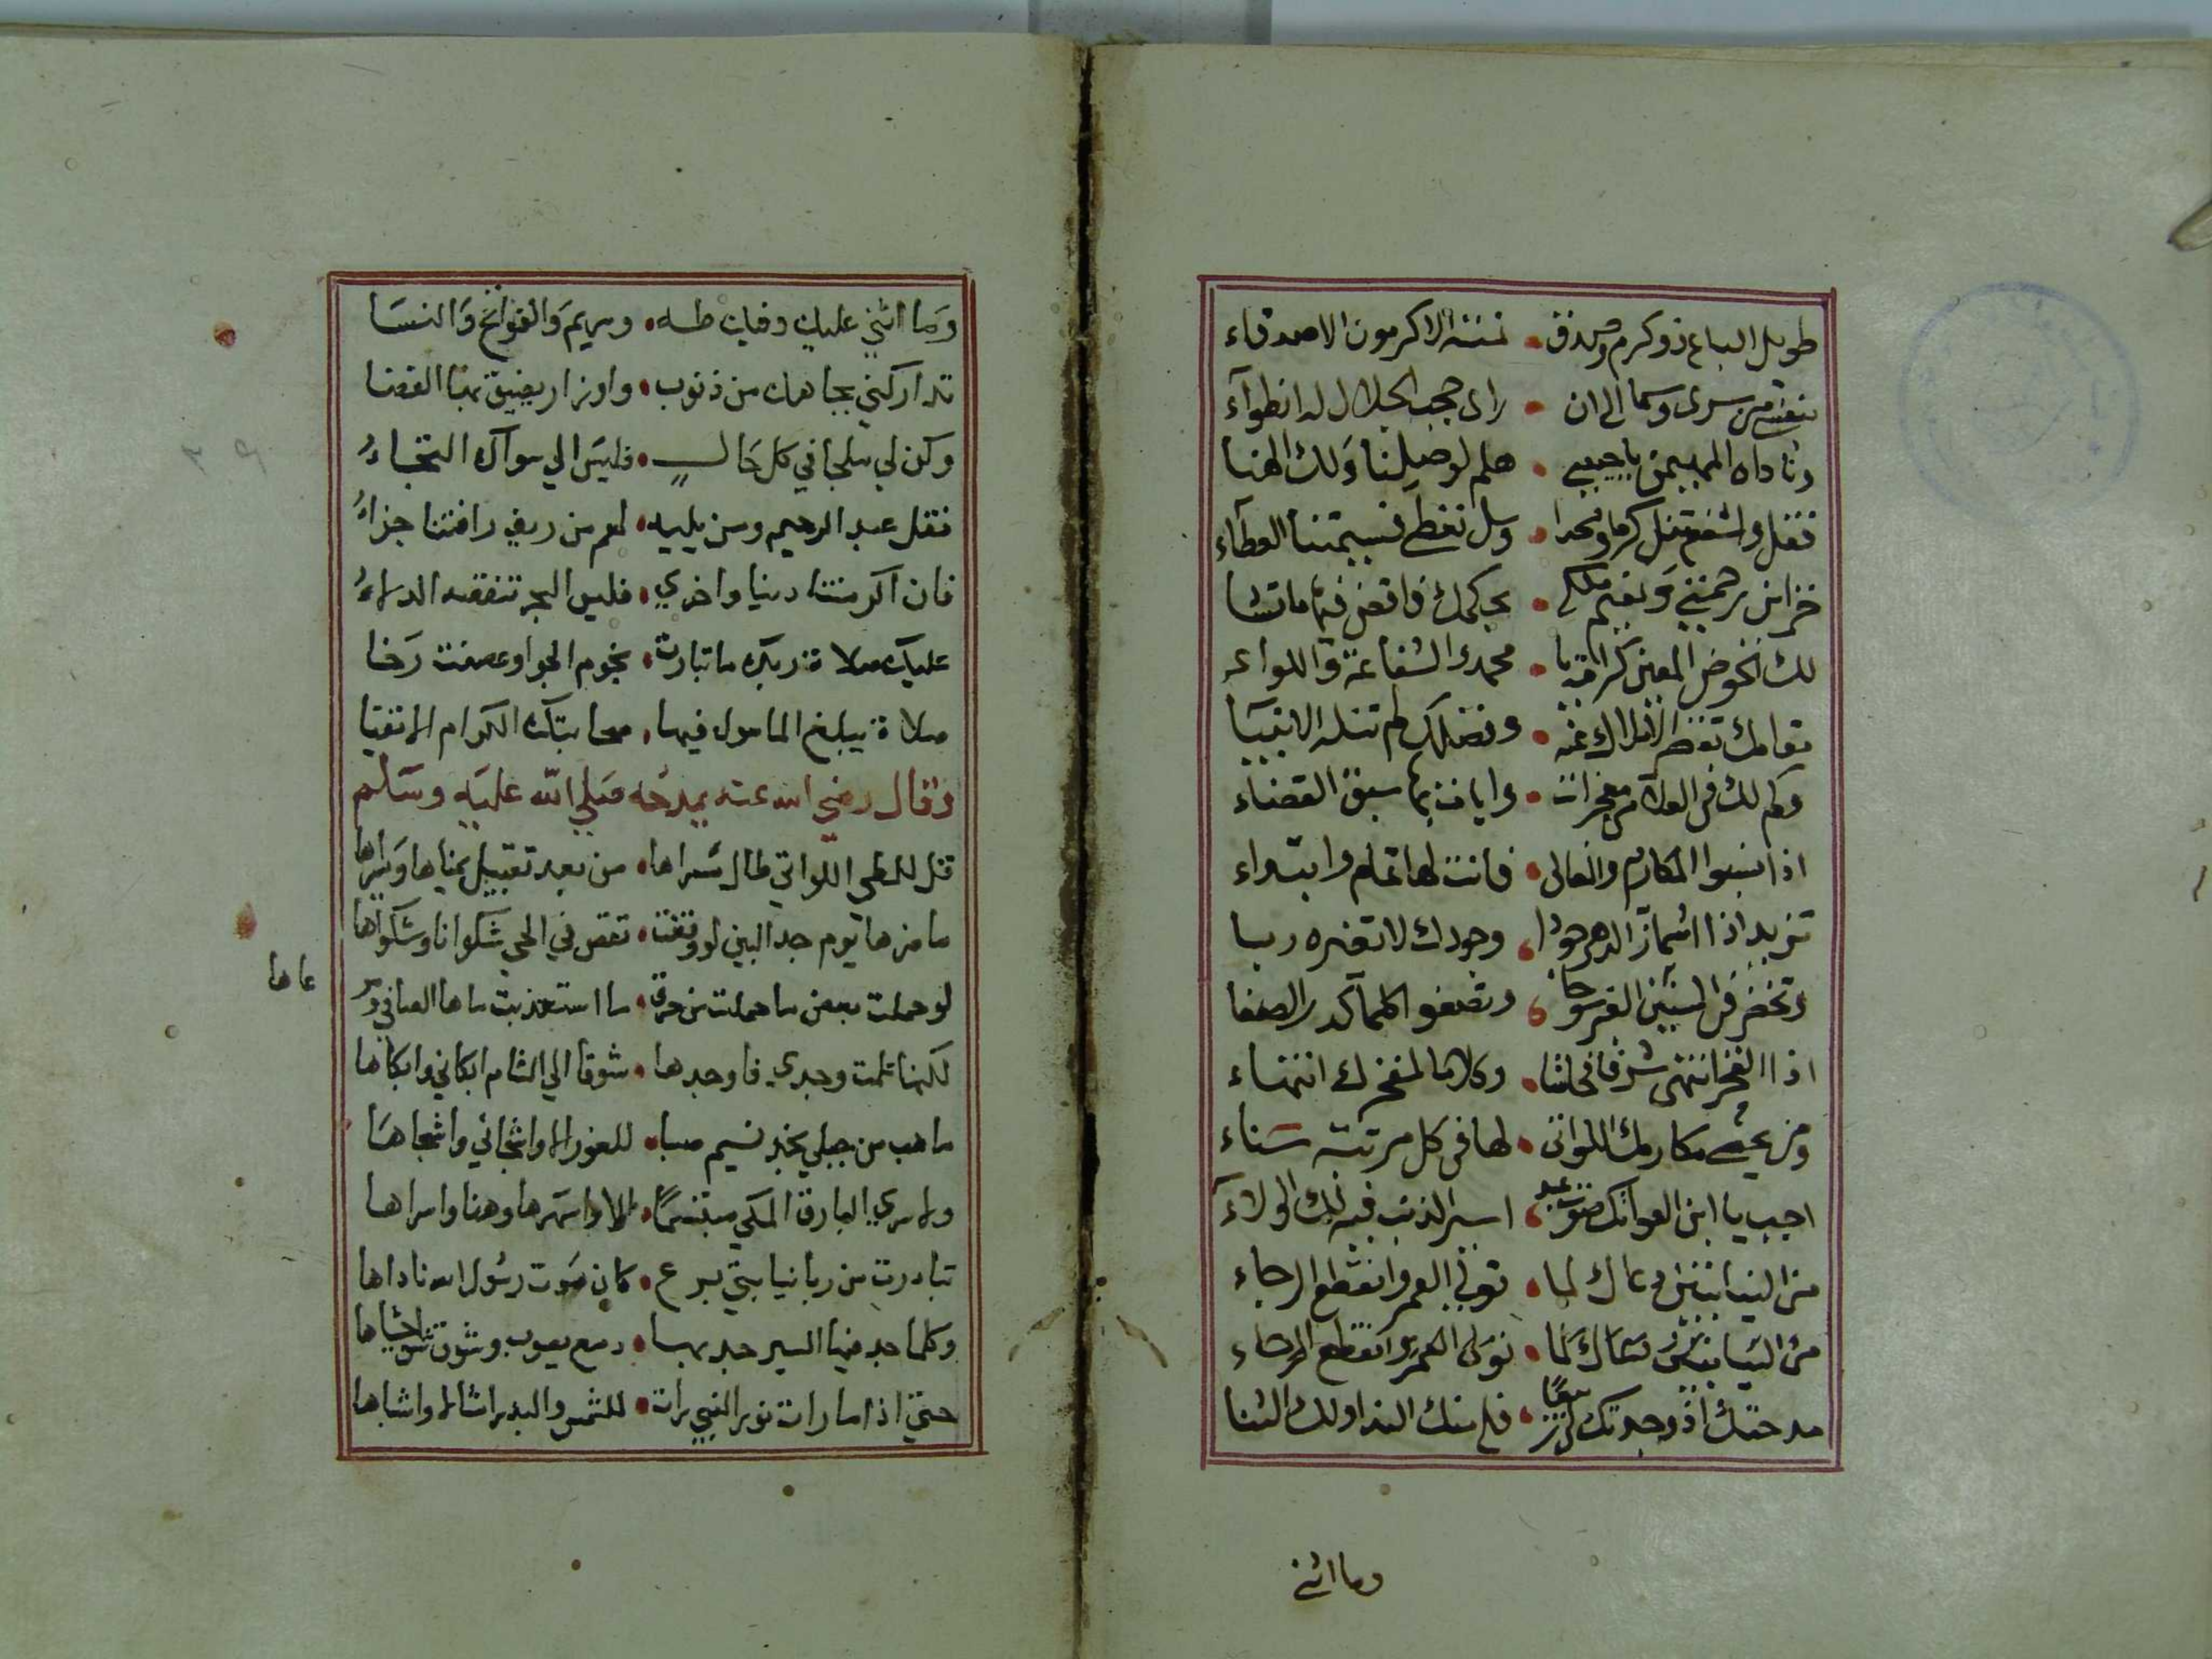 طويل الباع ذو كرم وصدق • نمته الاكرمون الاصدقاء
سرى وسما الى ان • راى حجب الجلال له انطوآء
وناداه المهيمن يا حبيبي • هلم لوصلنا ولك الهنا
فقل واشفع تنل كرما ومجدا • وسل تعطى فشيمتنا العطآء
خزائن رحمتي ونعيم ملكي • بحكمك فاقض فيها ما تشا
لك الحوض المعين كرامة يا • محمد والشفاعة واللواء
مقامك تقصر الاملاك عنه • وفضلك لم تنله الانبيا
وكم لك في العلا من معجزات • وايات بها سبق القضاء
اذا نسبوا المكارم والمعالى • فانت لها تمام وابتداء
تزيد اذا اشمأز الدهر جودا • وجودك لا تغيره ربا
وتخضر في السنين الغبر سوحا • وتصفو كلما كدر الصفا
اذا الفخر انتهى شرفا فحاشا • وكلا ما لمفخرك انتهاء
ومن يحصي مكارمك اللواتي • لها في كل مرتبة سناء
اجب يا ابن العواتك صوت عبد • اسير الذنب فيه لك الولاء
من النيابتين دعاك لما • تولى العمر وانقطع الرجاء
من النيابتين دعاك لما • تولى العمر وانقطع الرجاء
مدحتك اذ وجدتك لي ربيعًا • فلى منك الندا ولك الثنا
وما اثني
وما اثني عليك وفيك طه • ومريم والفواتح والنسا
تداركني بجاهك من ذنوب • واوزار يضيق بها الفضا
وكن لي ملجا في كل حال • فليس الي سواك التجاءُ
فقل عبد الرحيم ومن يليه • لهم من ريف رافتنا جزاءُ
فان اكرمتنا دنيا واخري • فليس البحر تنقصه الدلاءُ
عليك صلاة ربك ما تبارت • نجوم الجو او عصفت رخا
صلاة يبلغ المامول فيها • صحابتك الكرام الاتقيا
وقال رضي الله عنه يمدحه صلي الله عليه وسلم
قل للمطي اللواتي طال سراها • من بعد تقبيل يمناها ويسراها
ما ضرها يوم جد البين لو وقفت • تقص في الحي شكوانا وشكواها
لو حملت بعض ما حملت من حرق • ما استعذبت ماها الصافي ومر
عاها
لكنها علمت وجدي فاوجدها • شوقا الي الشام ابكاني وابكاها
ما هب من جبلي نجد نسيم صبا • للغور الا واشجاني واشجاها
ولا سري البارق المكي مبتسمًا • الا واسهرها وهنا واسراها
تبادرت من ربا نيابتي برع • كان صوت رسول الله ناداها
وكلما جد فيها السير جد بها • دمع يصوب وشوق شق احشاها
حتي اذا ما رات نور النبي رات • للشمس والبدر امثالا واشباها